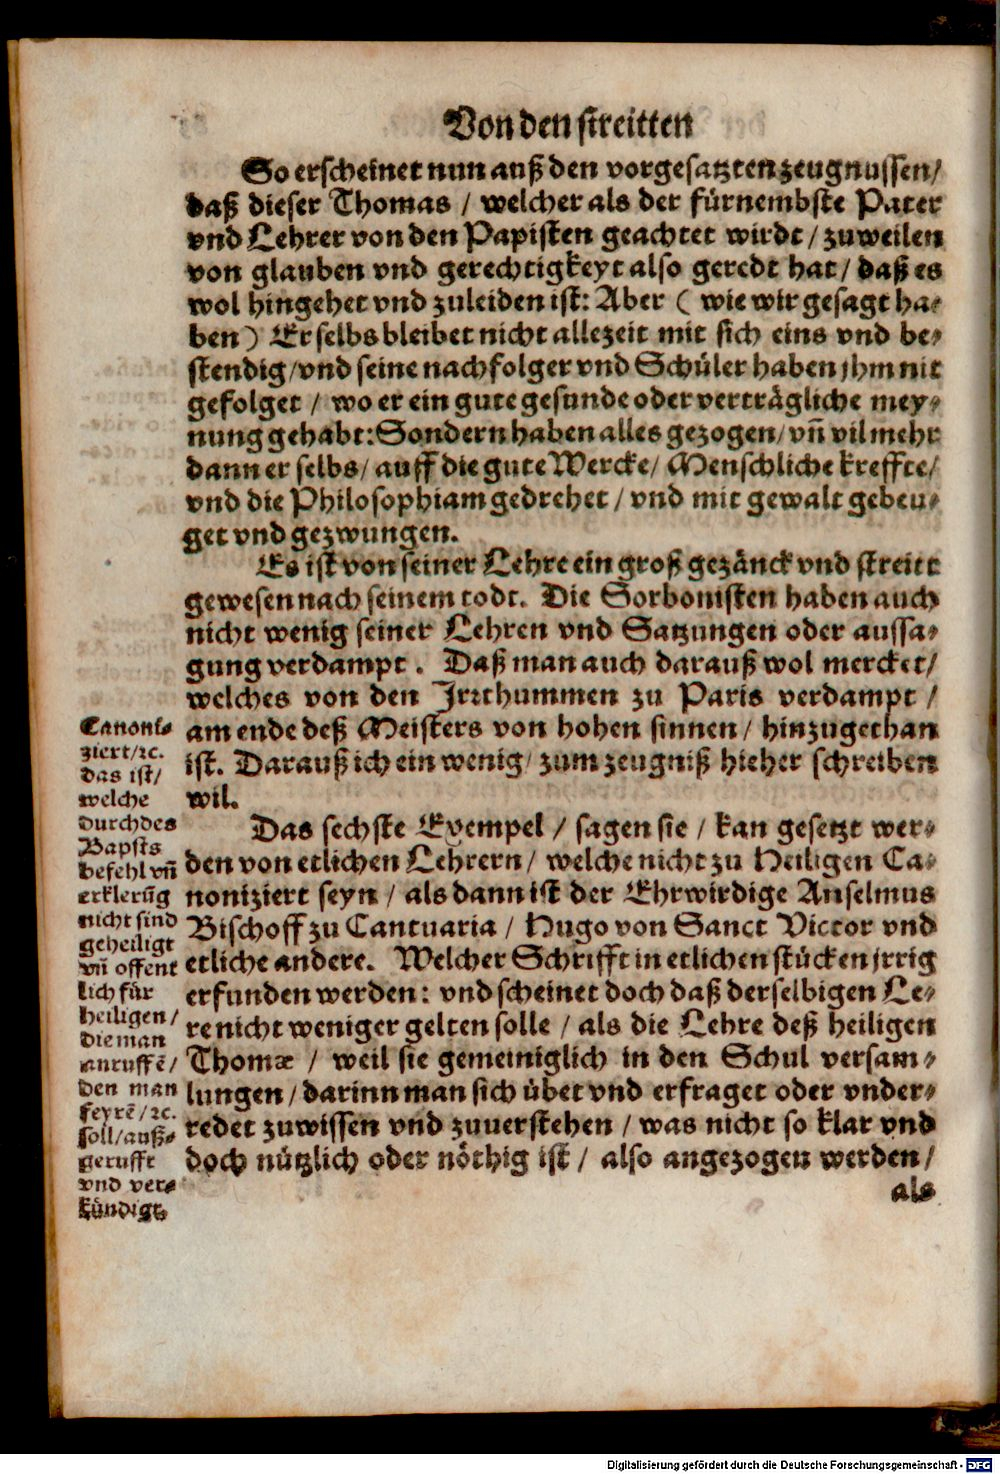 Von den streitten
So erscheinet nun auß den vorgesatzten zeugnussen/
daß dieser Thomas / welcher als der fürnembste Pater
vnd Lehrer von den Papisten geachtet wirdt / zuweilen
von glauben vnd gerechtigkeyt also geredt hat / daß es
wol hingehet vnd zuleiden ist: Aber ( wie wir gesagt ha⸗
ben ) Er selbs bleibet nicht allezeit mit sich eins vnd be⸗
stendig /vnd seine nachfolger vnd Schüler haben jhm nit
gefolget / wo er ein gute gesunde oder verträgliche mey⸗
nung gehabt: Sondern haben alles gezogen/ vñ vil mehr
dann er selbs/ auff die gute Wercke/ Menschliche kreffte/
vnd die Philosophiam gedrehet / vnd mit gewalt gebeu⸗
get vnd gezwungen.
Es ist von seiner Lehre ein groß gezänck vnd streitt
gewesen nach seinem todt. Die Sorbonisten haben auch
nicht wenig seiner Lehren vnd Satzungen oder aussa⸗
gung verdampt . Daß man auch darauß wol mercket/
welches von den Jrrthummen zu Paris verdampt /
am ende deß Meisters von hohen sinnen / hinzugethan
ist. Darauß ich ein wenig/ zum zeugniß hieher schreiben
wil.
Das sechste Exempel / sagen sie / kan gesetzt wer⸗
den von etlichen Lehrern/ welche nicht zu Heiligen Ca⸗
noniziert seyn / als dann ist der Ehrwirdige Anselmus
Bischoff zu Cantuaria / Hugo von Sanct Victor vnd
etliche andere. Welcher Schrifft in etlichen stücken jrrig
erfunden werden: vnd scheinet doch daß derselbigen Le⸗
re nicht weniger gelten solle / als die Lehre deß heiligen
Thomæ / weil sie gemeiniglich in den Schul versam⸗
lungen / darinn man sich übet vnd erfraget oder vnder⸗
redet zuwissen vnd zuuerstehen / was nicht so klar vnd
doch nützlich oder nöthig ist / also angezogen werden /
als
Canoni⸗
ziert/ꝛc.
das ist/
welche
durch des
Bapsts
befehl vñ
erklerũg
nicht sind
geheiligt
vñ offent
lich für
heiligen /
die man
anruffẽ /
den man
feyrẽ /ꝛc.
soll/auß⸗
gerufft
vnd ver⸗
kündigt.
Digitalisierung gefördert durch die Deutsche Forschungsgemeinschaft - DFG